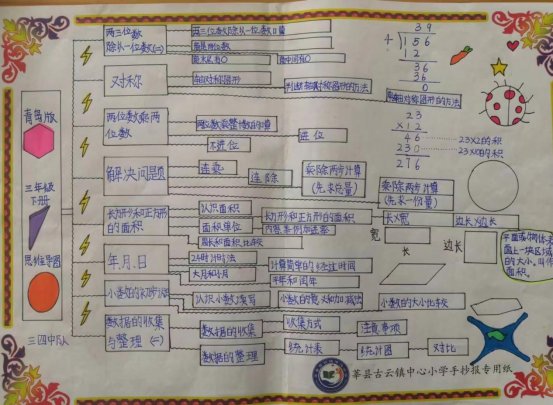 青岛版
三年级
下册
思维导图
三四中队
两三位数
除以一位数(二)
两三位数除以一位数口算
商是两位数
商末尾有0
商中间有0
对称
轴对称图形
判断轴对称图形的方法
画轴对称图形的方法
两位数乘两
位数
两位数乘整十数的口算
不进位
进位
解决问题
连乘
连除
乘除两步计算
(先求总量)
乘除两步计算
(先求一份量)
长方形和正方形
的面积
认识面积
面积单位
长方形和正方形的面积
长X宽
边长X边长
周长和面积比较
年、月、日
24时计时法
大月和小月
计算简单的经过时间
平年和闰年
小数的初步认识
认识小数读写
小数的意义和加减法
小数的大小比较
数据的收集
与整理(二)
数据的收集
收集方式
注意事项
数据的整理
统计表
统计图
对比
39
4
156
12
36
36
0
23
×12
46
23X2的积
230
276
宽
长
边长
平面或物体表
面上一块区域
的大小,叫作
面积。
莘县古云镇中心小学手抄报专用纸